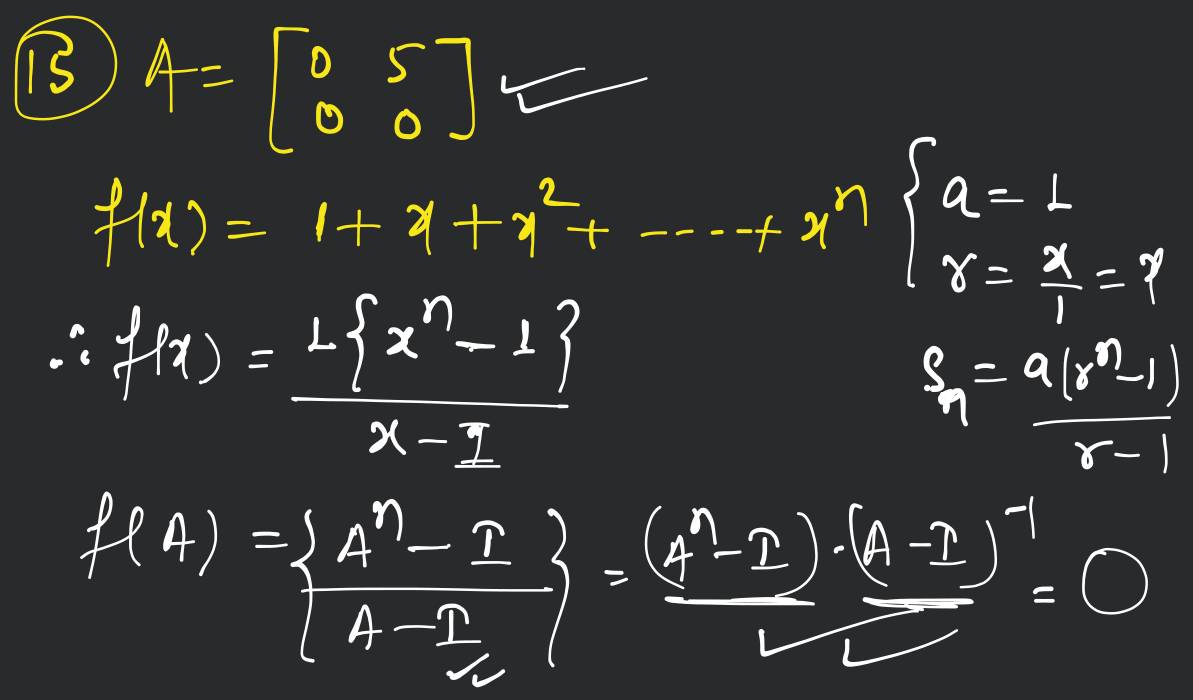 15 A = [ 0 5
0 0 ]
f(x) = 1 + x + x² + ----+ xⁿ { a = 1
r = x/1 = x
∴ f(x) = 1{xⁿ - 1} / x - 1
Sₙ = a(rⁿ-1) / r-1
f(A) = {Aⁿ - I / A - I} = (Aⁿ - I)·(A - I)⁻¹ = O